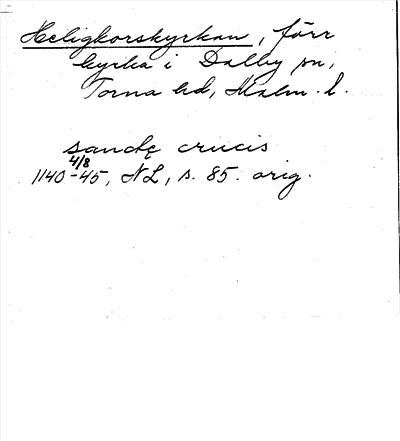 Heligkorskyrkan, förr
kyrka i Dalby sn,
Torna hd, Malm. l.
sanctę crucis
4/8
1140-45, NL, s. 85. orig.